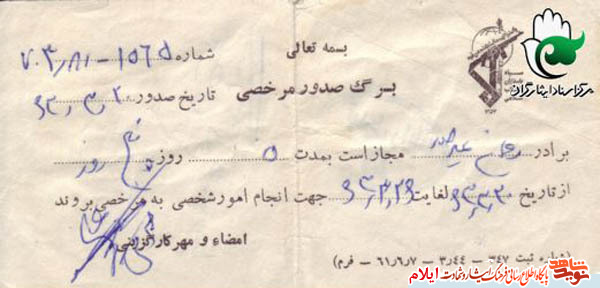 بسمه تعالی
شماره ۱۵۶۵-۷۰۳٫۸۱
برگ صدور مرخصی
تاریخ صدور ۶۳٫۳٫۲
سپاه پاسداران انقلاب اسلامی
مرکز اسناد ایثارگران
برادر مجاز است بمدت ۵ روز پنج روز
از تاریخ لغایت جهت انجام امور شخصی به مرخصی بروند
امضاء و مهر کارگزینی
(شماره ثبت ۶۴۷ - ۳٫۴۴ - ۶۱٫۶٫۷ - فرم)
نوید شاهد
پایگاه اطلاع رسانی فرهنگ ایثار و شهادت ایلام